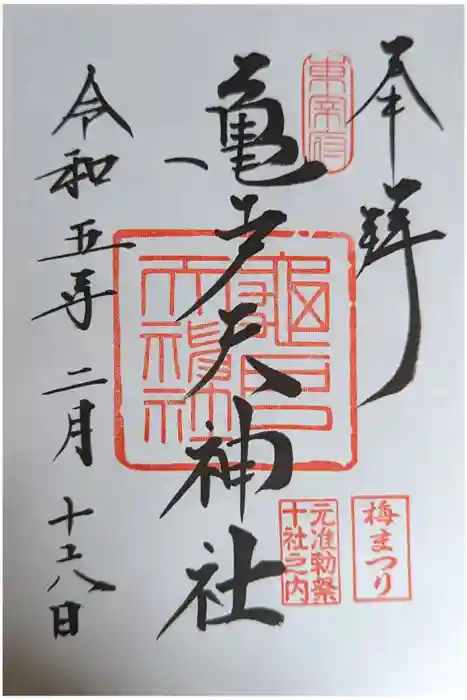 奉拝
亀戸天神社
令和五年二月十八日
亀戸天神社
梅まつり
元准勅祭
十社之内